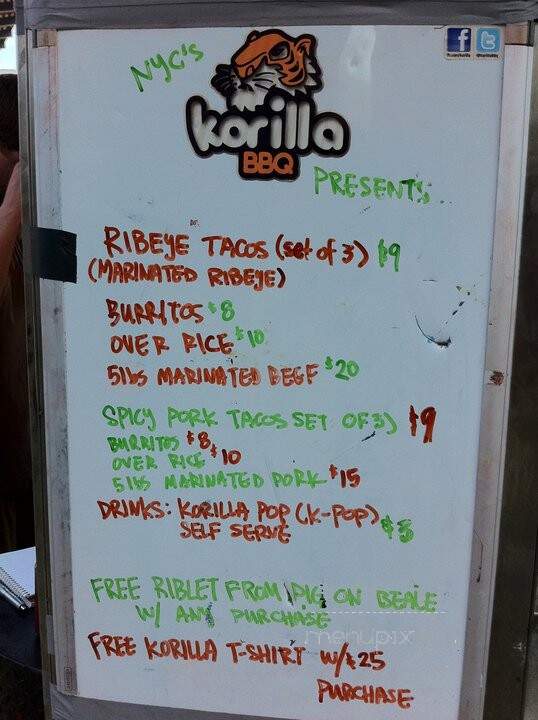 NYC'S
korilla
BBQ
PRESENTS
RIBEYE TACOS (set of 3) $9
(MARINATED RIBEYE)
BURRITOS $8
OVER RICE $10
5lbs MARINATED BEEF $20
SPICY PORK TACOS SET OF 3) $9
BURRITOS $8
OVER RICE $10
5lbs MARINATED PORK $15
DRINKS: KORILLA POP (K-POP)
SELF SERVE $3
FREE RIBLET FROM PIG ON BEALE
W/ ANY PURCHASE
menupix
FREE KORILLA T-SHIRT W/$25
PURCHASE